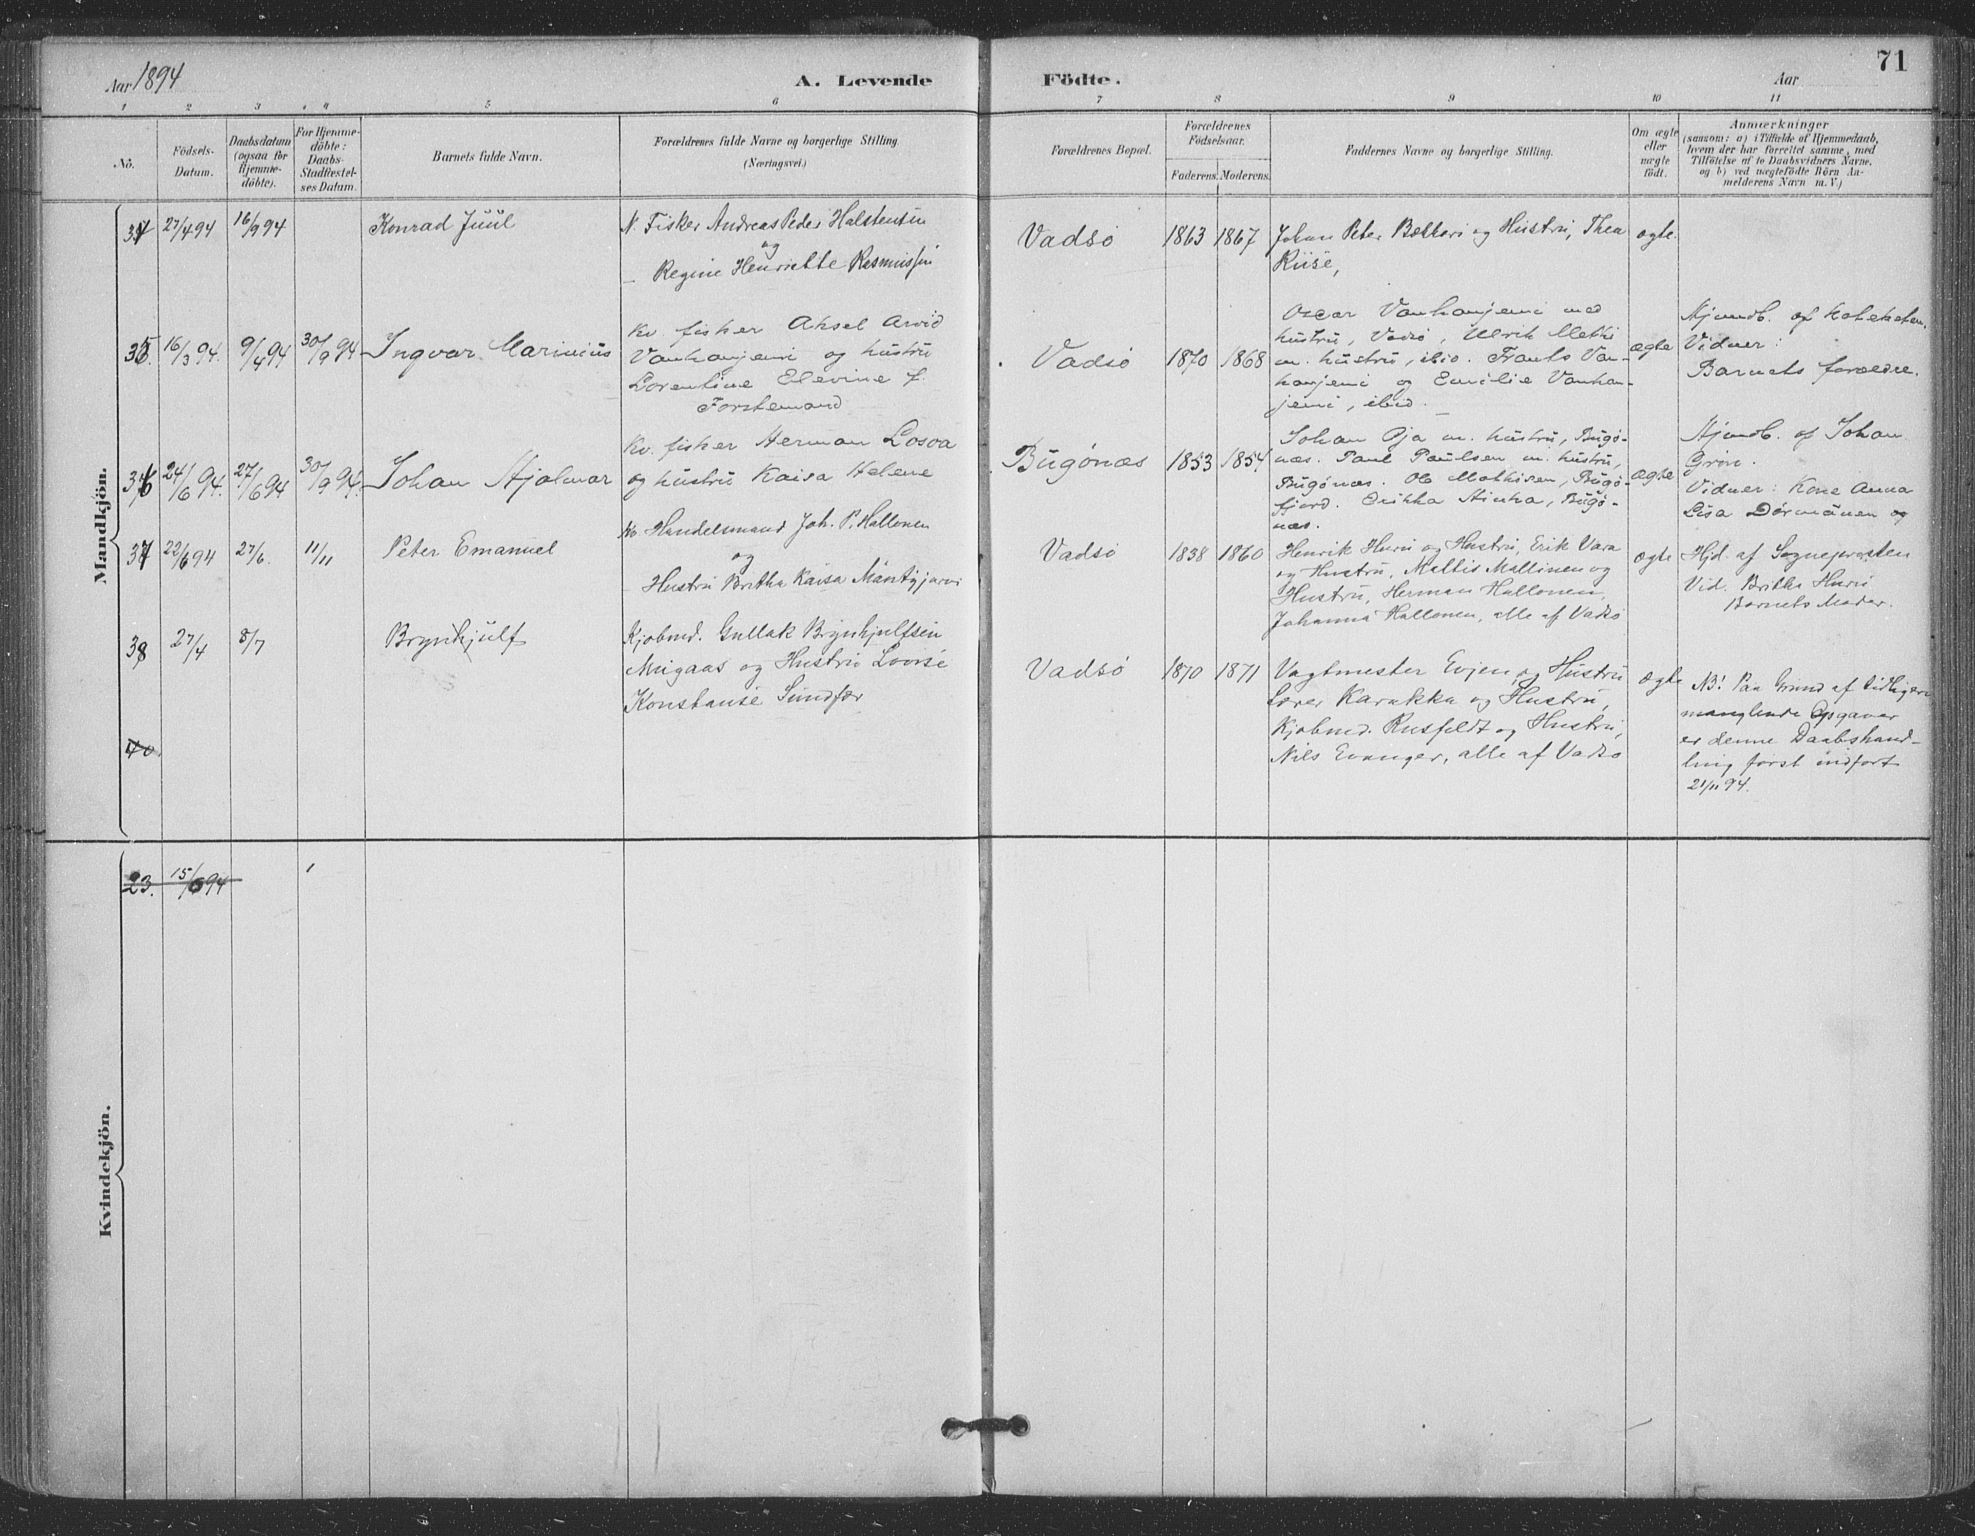 71
Aar 1894
A. Levende
Födte.
Aar
1 2 3 4 5 6 7 8 9 10 11
No.
Födsels-
Datum.
Daabsdatum
(ogsaa för
Hjemme-
döbte).
For Hjemme-
döbte:
Daabs-
Stadfæstel-
ses Datum.
Barnets fulde Navn.
Forældrenes fulde Navne og borgerlige Stilling
(Næringsvei.)
Forældrenes Bopæl.
Forældrenes
Födselsaar.
Faderens. Moderens.
Faddernes Navne og borgerlige Stilling.
Om ægte
eller
uægte
födt.
Anmærkninger
(saasom: a) i Tilfælde af Hjemmedaab,
hvem der har forrettet samme, med
Tilföielse af to Daabsvidners Navne,
og b) ved uægtefödte Börn An-
melderens Navn m. V.)
Mandkjön.
34 27/4 94 16/9 94
Konrad Juul
N. Fisker Andreas Peder Halstensen
og
Regine Henriette Rasmussen
Vadsö
1863 1867
Johan Peter Bækkari og Hustru, Thea
Riise,
ægte.
35 16/3 94. 9/4 94 30/9 94
Ingvar Marinius
Kv. fisher Aksel Arvid
Vanhanjemi og hustru
Lorentine Elevine f.
Forstemand
Vadsö
1870 1868
Oscar Vanhanjemi med
hustru, Vadsö, Ulrik Mathi
m. hustru, ibid. Frants Van-
hanjemi og Emilie Vanhan-
jemi, ibid.
ægte
Hjemdb. af
Vidner:
Barnets forældre.
36 24/6 94. 27/6 94 30/9 94.
Johan Hjalmar
Kv. fisher Herman Losoa
og hustru Kaisa Helene
Bugönæs
1853 1854
Johan Oja m. hustru, Bugö-
næs. Paul Paulsen m. hustru,
Bugönæs. Ole Mathisen, Bugö-
fjord. Erikka Hinka, Bugö-
næs.
ægte
Hjemdb. af Johan
Grön.
Vidner: Kone Anna
Lisa Dörmänen og
37 22/6 94 27/6. 11/11
Peter Emanuel
Kv. Handelsmand Joh. P. Hallonen
og
Hustru Britha Kaisa Mäntyjarvi
Vadsö
1838 1860
Henrik Huru og Hustru, Erik Vara
og Hustru, Mattis Mallinen og
Hustru, Herman Hallonen,
Johanna Hallonen, alle af Vadsö
ægte
Hjd. af Sognepresten
Vid. Britha Huru
Barnets Moder.
38 27/4 8/7
Brynhjulf
Kjöbmd. Gullak Brynhjulfsen
Mugaas og Hustru Lovise
Konstanse Sundfær
Vadsö
1870 1871
Vagtmester Evjen og Hustru
Lærer Karakka og Hustru,
Kjöbmd. Rusfeldt og Hustru,
Nils Evanger, alle af Vadsö
ægte
NB! Paa Grund af tidligere
manglende Opgaver
er denne Daabshand-
ling först indfört
21/11 94.
40.
Kvindekjön.
23. 15/6 94